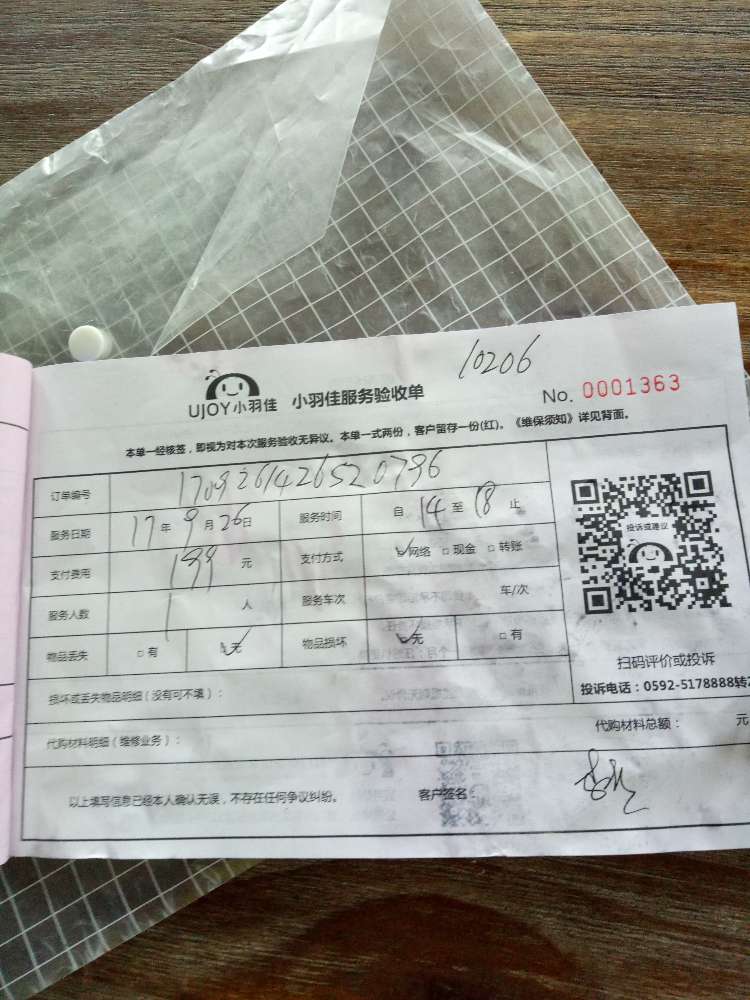 10206
UJOY小羽佳 小羽佳服务验收单 No. 0001363
本单一经核签，即视为对本次服务验收无异议。本单一式两份，客户留存一份(红)。《维保须知》详见背面。
订单编号 1709261426520796
服务日期 17年9月26日 服务时间 自14至18止
支付费用 199元 支付方式 ☑网络 □现金 □转账
服务人数 1人 服务车次 车/次
物品丢失 □有 ☑无 物品损坏 ☑无 □有
损坏或丢失物品明细（没有可不填）：
代购材料明细（维修业务）： 代购材料总额： 元
以上填写信息已经本人确认无误，不存在任何争议纠纷。 客户签名：
投诉或建议
扫码评价或投诉
投诉电话：0592-5178888转2